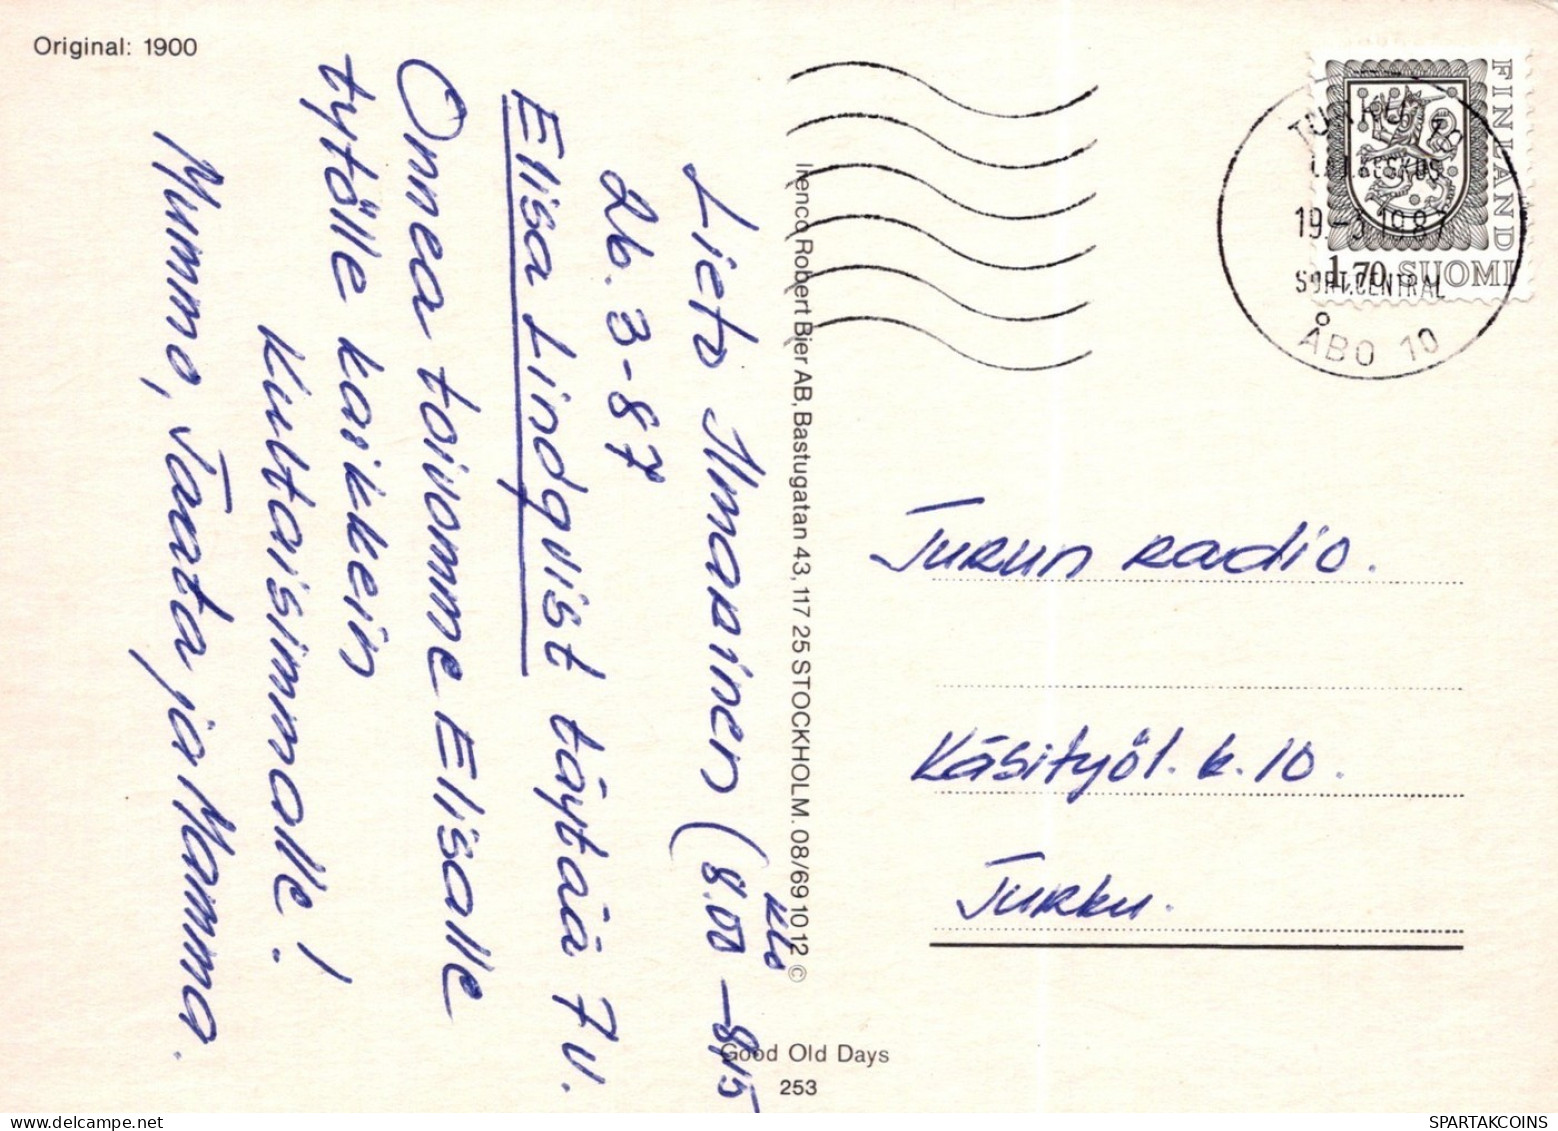 Original: 1900
Lieto Ilmarinen (8.00 – 8,15
klo
26.3-87
Elisa Lindqvist täytää 7v.
Onnea toivomme Elisalle
tytölle kaikkein
kultaisimmalle!
Mummo, Taata ja Mamma.
Irenco Robert Bier AB, Bastugatan 43, 117 25 STOCKHOLM. 08/69 10 12 ©
Good Old Days
253
FINLAND
1,70 SUOMI
TURKU 10
LAJ.KESKUS
19-3 1987
SORT.CENTRAL
ÅBO 10
Turun radio.
Käsityöl. k. 10.
Turku.
SPARTAKCOINS